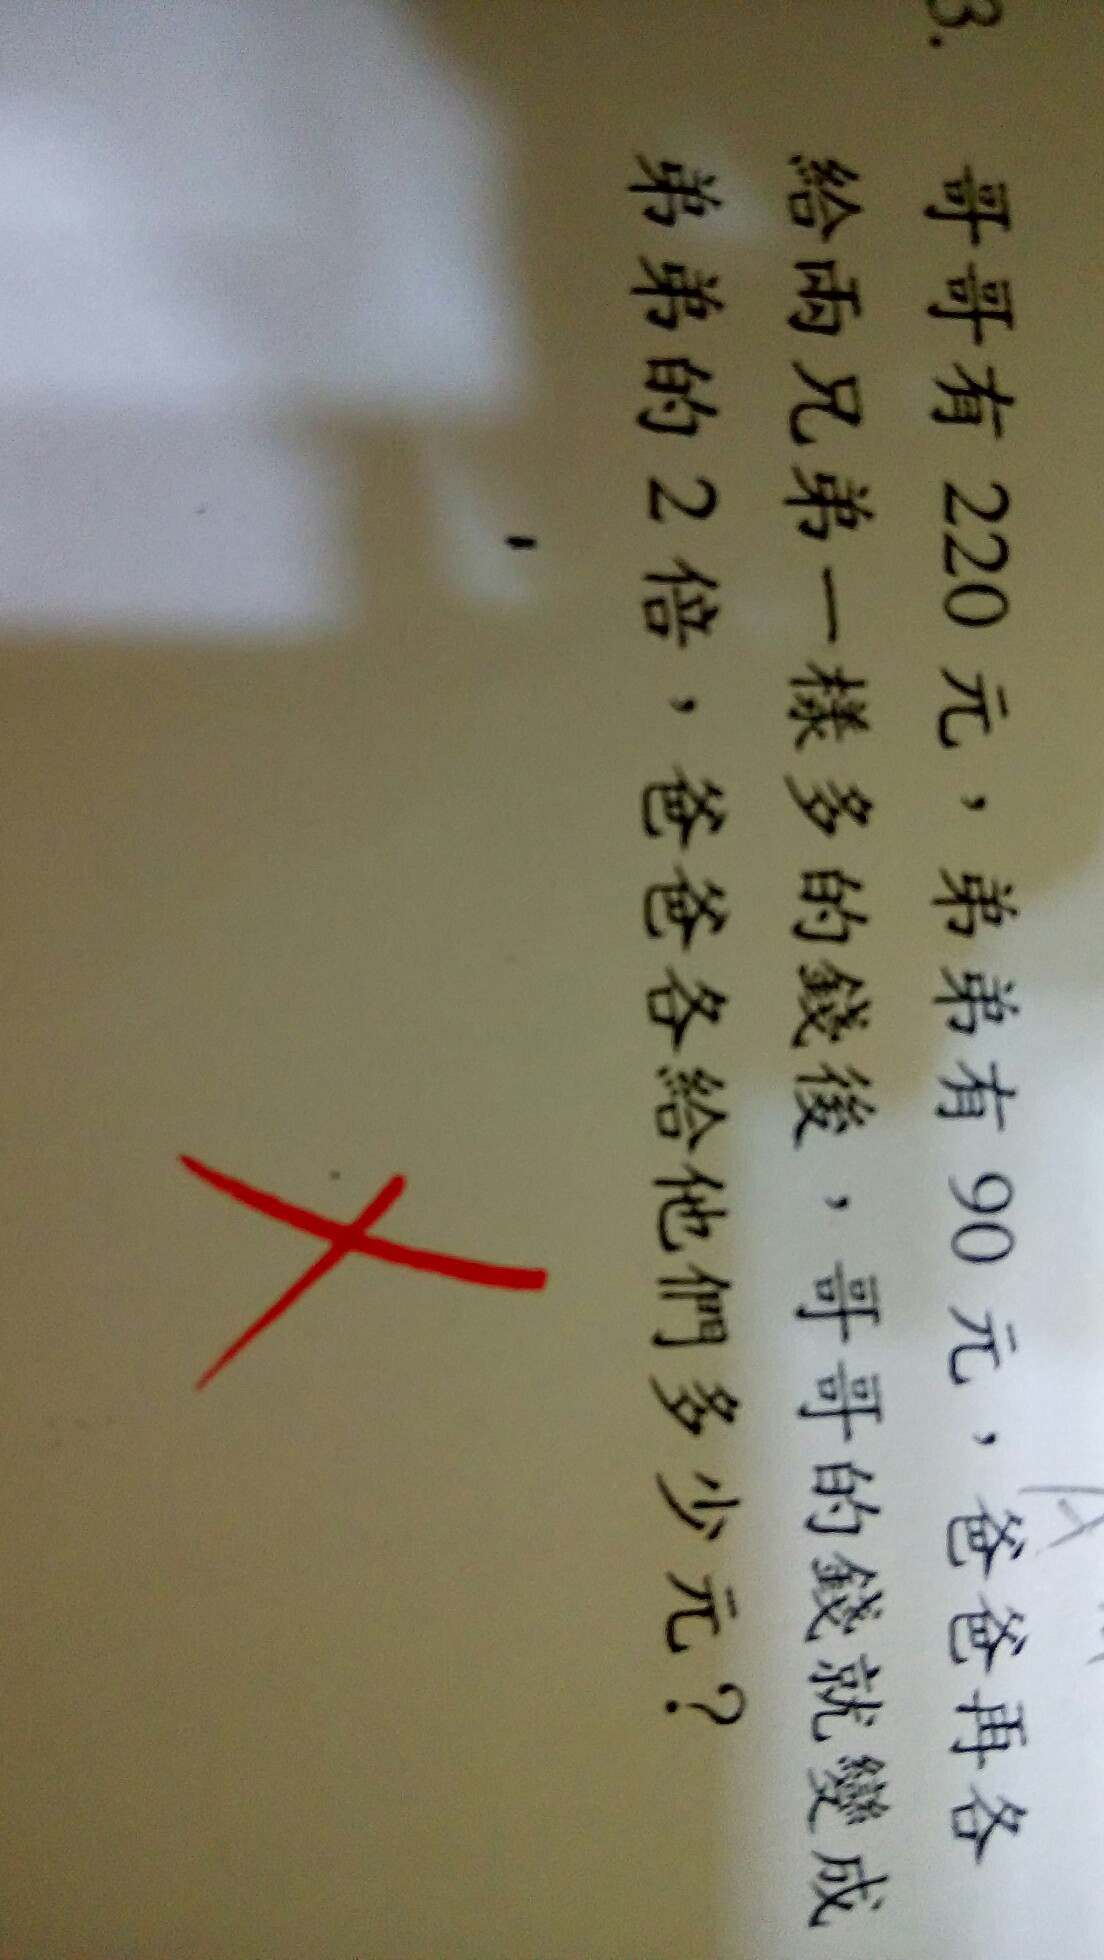 3. 哥哥有 220 元，弟弟有 90 元，爸爸再各
給兩兄弟一樣多的錢後，哥哥的錢就變成
弟弟的 2 倍，爸爸各給他們多少元？